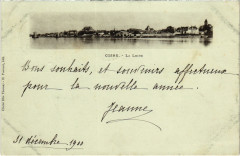 COSNE. - La Loire
Bons souhaits, et souvenirs affectueux
pour la nouvelle année.
Jeanne
31 décembre 1900